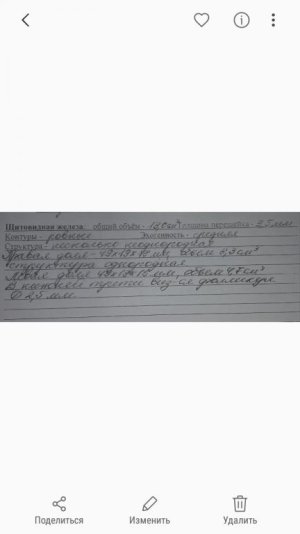 Щитовидная железа: общий объём - толщина перешейка - 2,5 мм
Контуры - ровные Эхогенность - средняя
Структура - несколько неоднородная
Правая доля - объём см³
структура однородная
Левая доля объём 4,7 см³
В нижней трети фолликул
2,5 мм
Поделиться Изменить Удалить